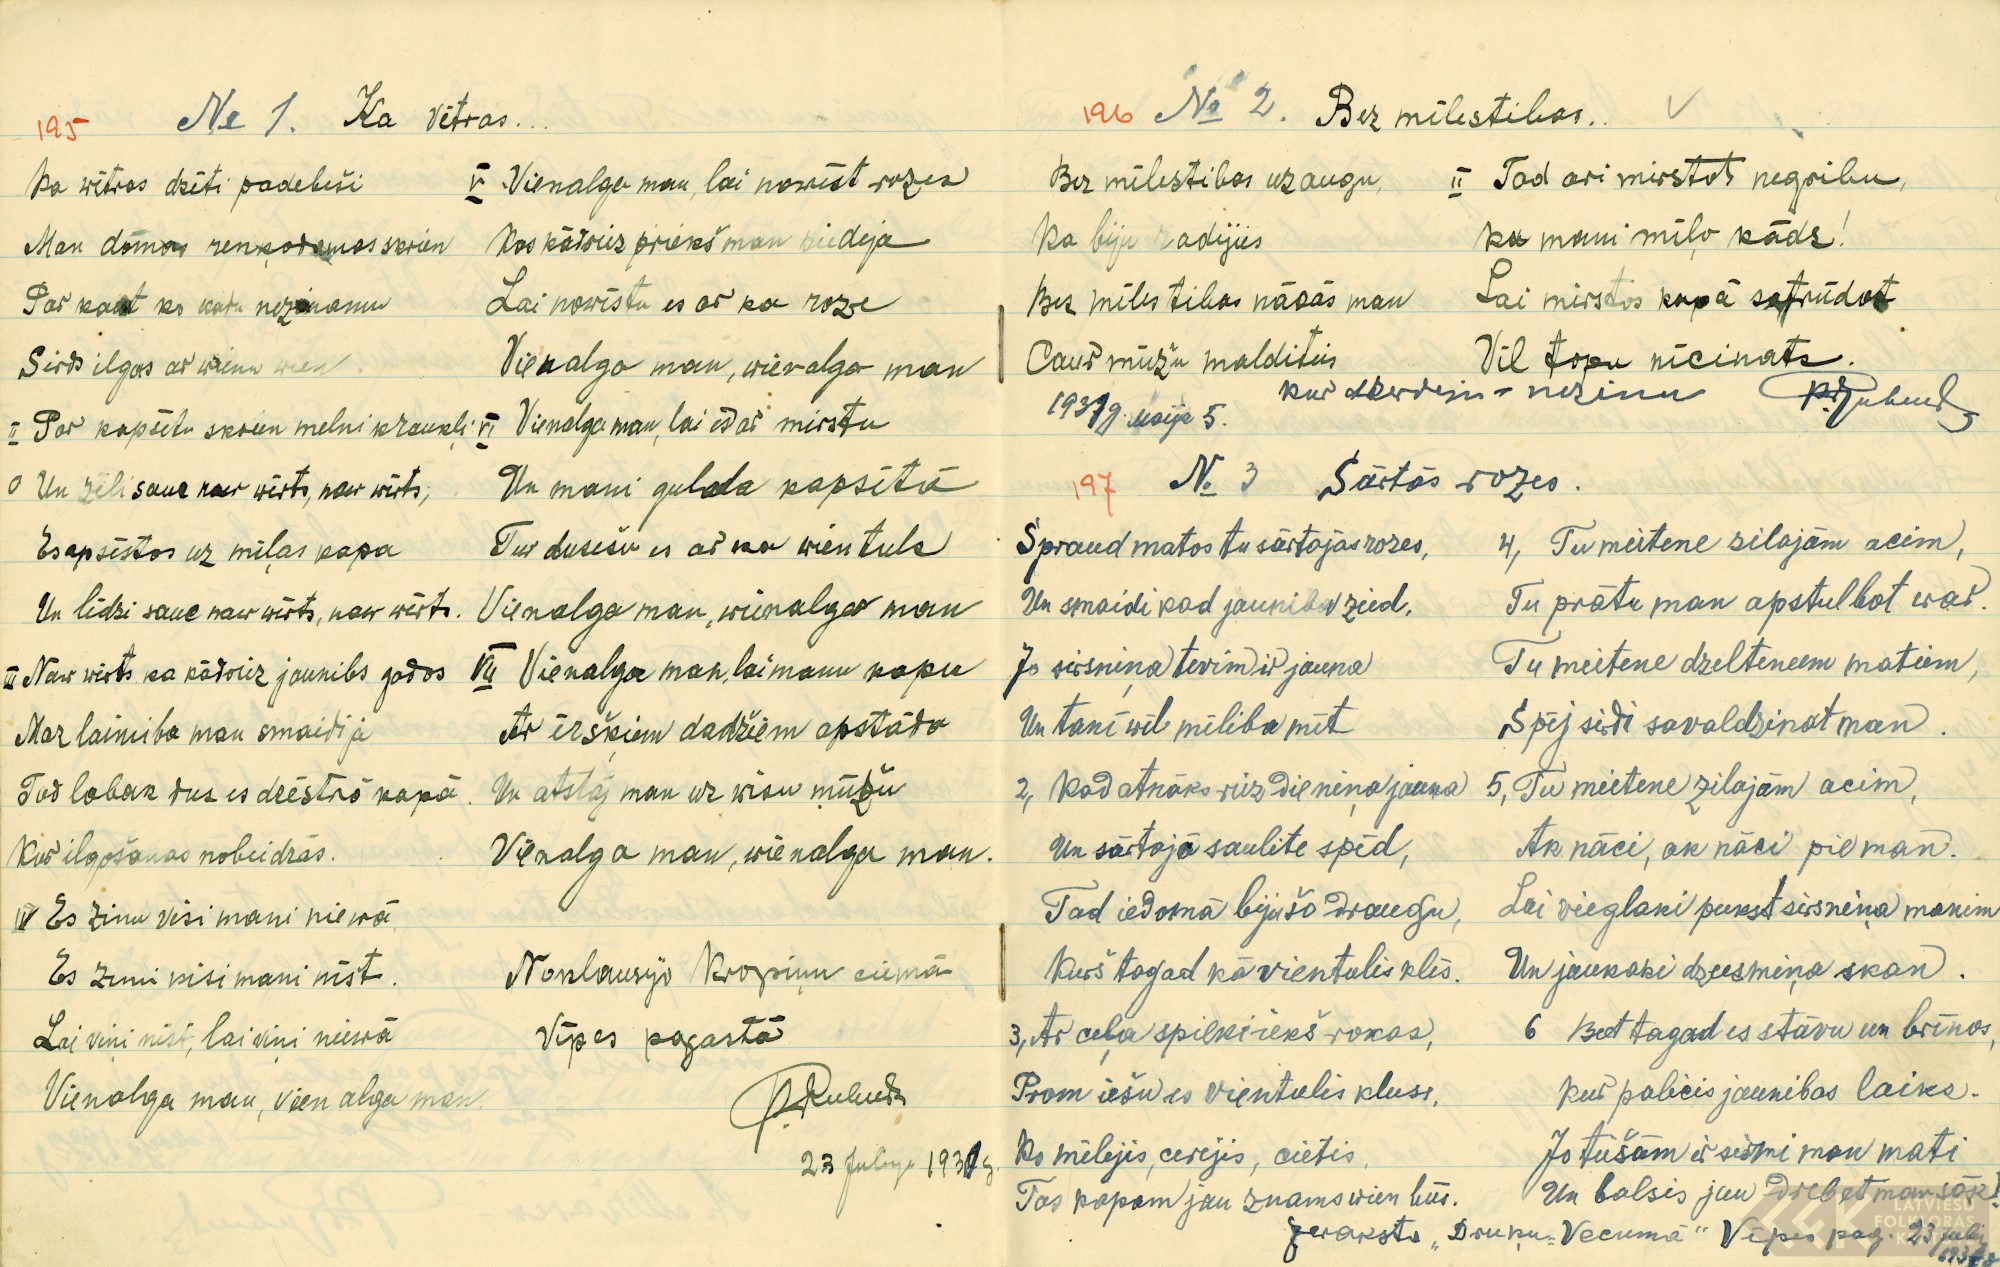 195 № 1. Ka vētras...
Ka wētras dzīti padebeši
Man domas renkodamas skrien
Par kaut ko nezinamu
Sirds ilgas ar wienu wien.
II Par kapsētu skrien melni kraukļi
Un žēli sauc naw wērts, naw wērts,
Es apsēstos uz mīļas kapa
Un līdzi sauc naw wērts, naw wērts.
III Naw wērts ka kādreiz jaunibs gados
Maz laimiba man smaidija
Tad labak dus es dzēstrō kapā.
Kur ilgošanas nobeidzās.
IV Es zinu visi mani niewā
Es zinu visi mani nīst.
Lai viņi nīst, lai viņi niewā
Vienalga man, vienalga man.
V Vienalga man, lai nowīst rozes
Kas kādreiz priekš man ziedēja
Lai nowīstu es ar ka roze
Vienalga man, wienalga man
VI Vienalga man, lai es ar mirstu
Un mani gulda kapsētā
Tur dusēšu es ar ka wientuls
Vienalga man, wienalga man
VII Vienalga man, lai manu kapu
Ar ērškiem dadžiem apstāda
Un atstāj man uz wisu mūžu
Vienalga man, wienalga man.
Noklausijo Kropiņu ciemā
Vīpes pagastā
23 Julijā 1931 g.
196 № 2. Bez mīlestibas..
Bez mīlestibas uzaugu,
Ka biju radījies
Bez mīlestibas nācās man
Caur mūžu maldities
II Tad ari mirstot negribu,
ka mani mīlo kāds!
Lai mirstos kapā satrūdot
Vēl topu nicinats.
kur dzerdeju = nezinu
1931 g. maija 5.
197 № 3 Sārtās rozes.
Spraud matos tu sārtajās rozes,
Un smaidi kad jauniba vzied.
Jo sirsniņa tevim ir jauna
Un tanī wēl mīliba mīt
2, Kad atnāks reiz dieniņa jauka
Un sārtajā saulite spīd,
Tad iedomā bijušo draugu,
Kurš tagad kā vientulis klīs.
3, Ar ceļa spieķi iekš rokas,
Prom iešu es vientulis kluss.
Ko mīlējis, cerējis, cietis,
Tas kapam jau znams wien būs.
4, Tu meitene zilajām acim,
Tu prātu man apstulbot war.
Tu meitene dzelteneem matiem,
Spēj sirdi savaldzinat man.
5, Tu meitene zilajām acim,
Ak nāci, ak nāci pie man.
Lai vieglaki pukst sirsniņa manim
Un jaukaki dzeesmiņa skan.
6 Bet tagad es stāvu un brīnos,
Kur palicis jaunibas laiks.
Jo tiešām ir sirmi man mati
Un balsis jau drebet man sāk!
Ieraksts „Druķu=Vecumā" Vīpes pag. 23 julij
LATVIEŠU
FOLKLORAS